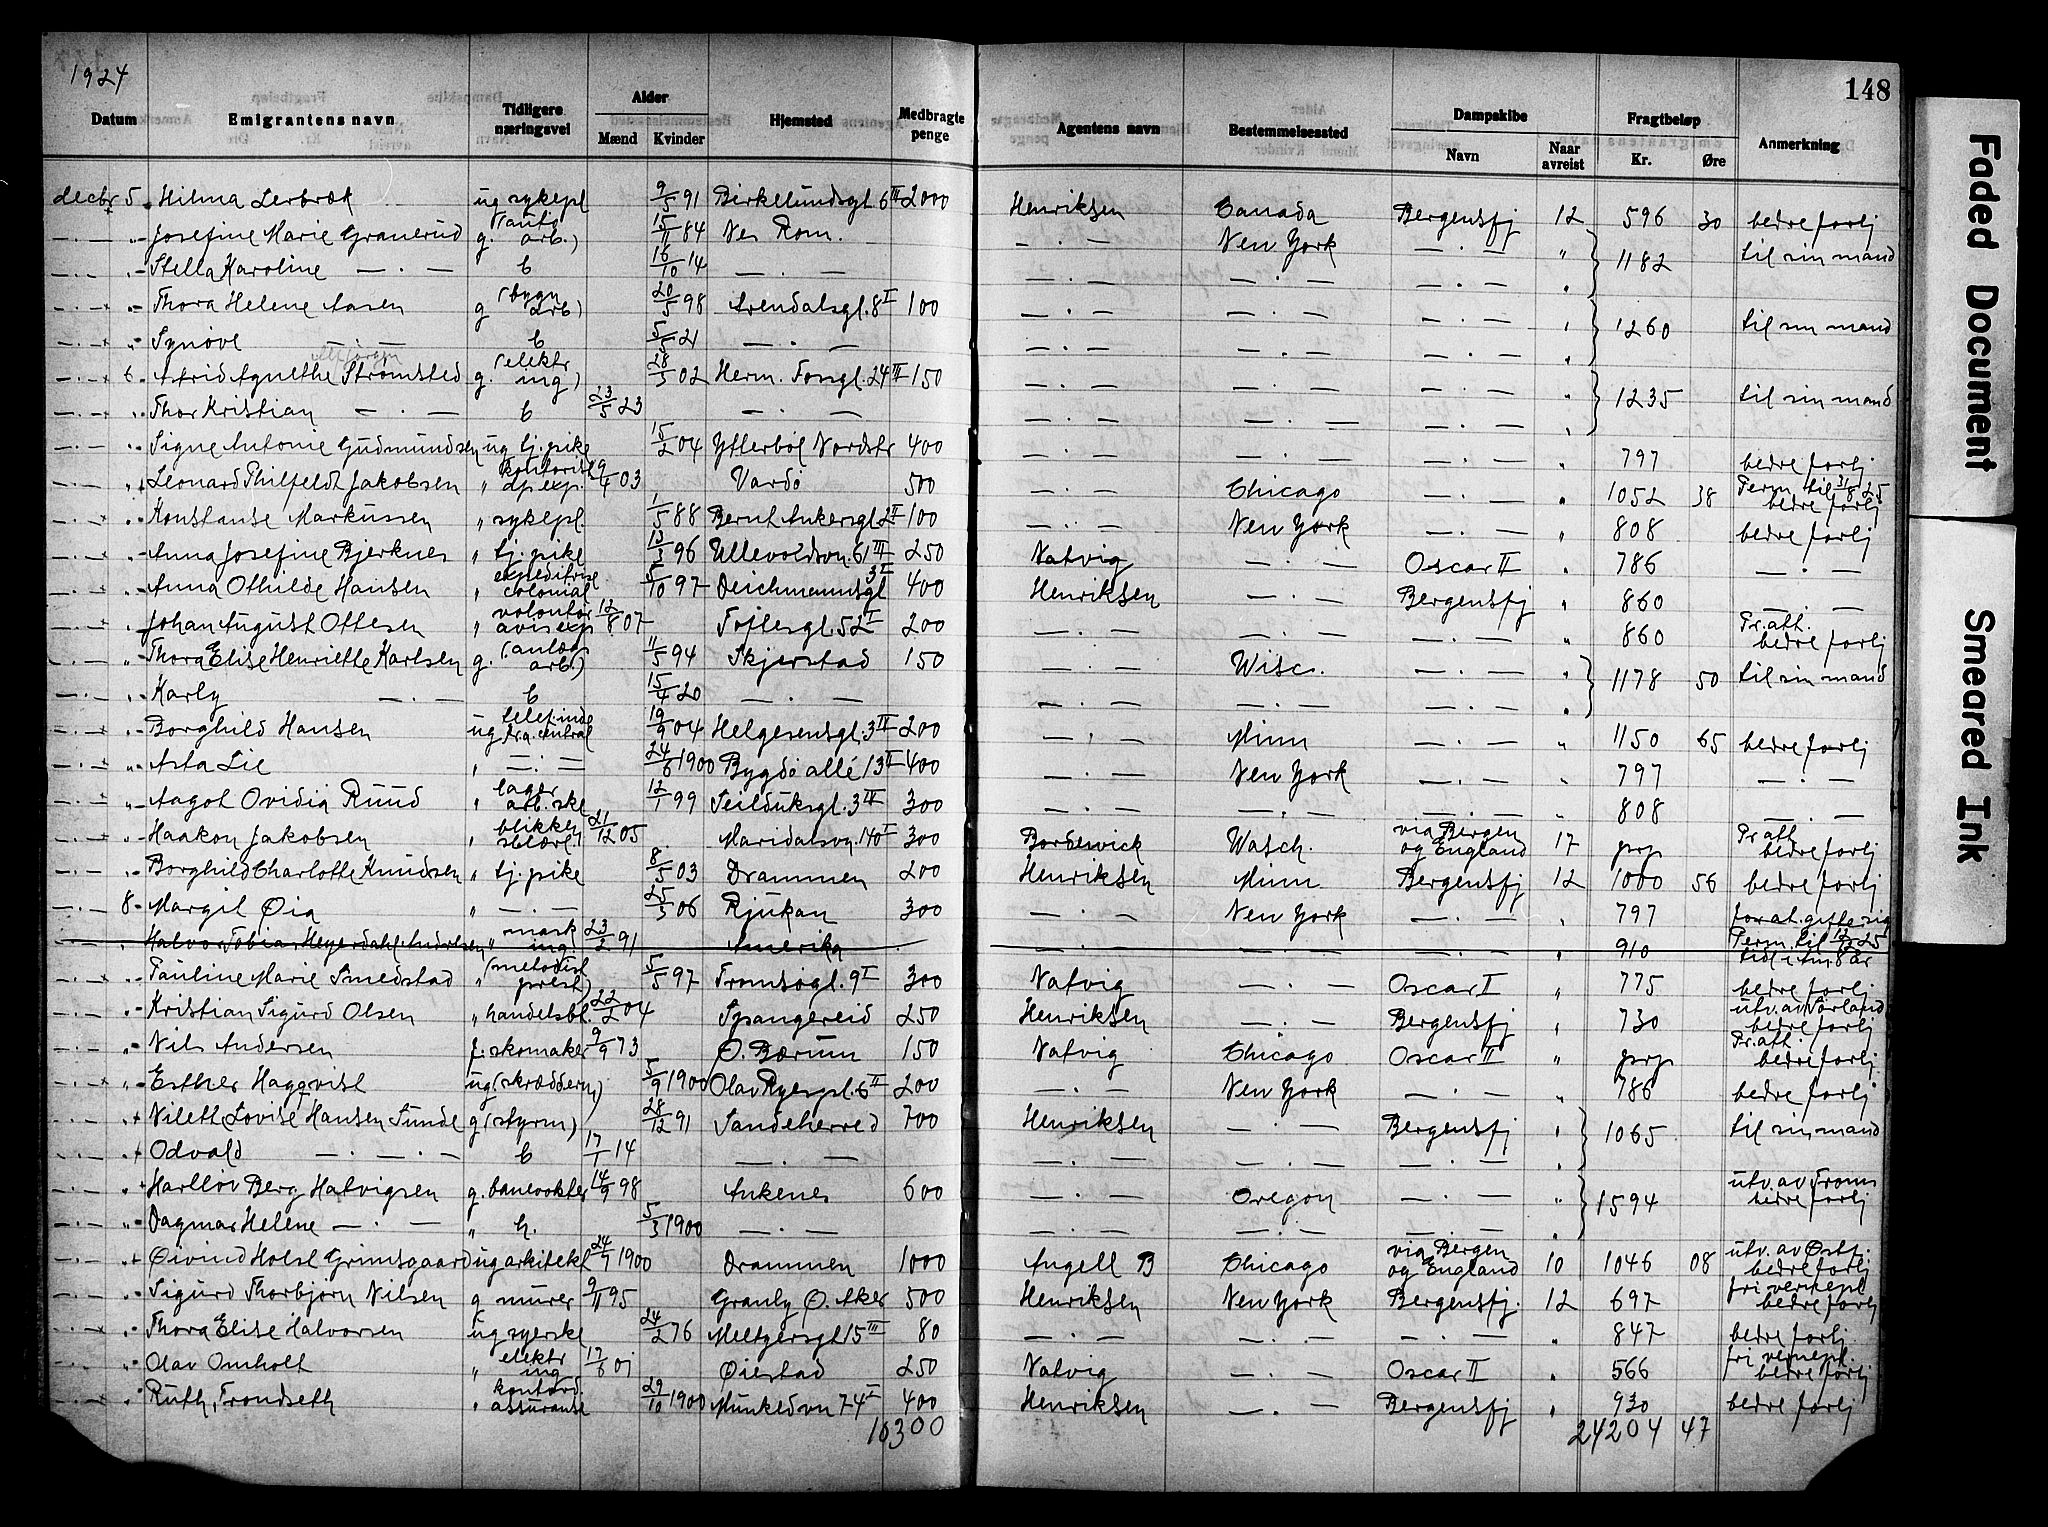 1924
148
Datum Emigrantens navn Tidligere næringsvei Alder Mænd Kvinder Hjemsted Medbragte penge Agentens navn Bestemmelsessted Dampskibe Navn Naar avreist Fragtbeløp Kr. Øre Anmerkning
decbr 5 Hilma Lerbræk ug sykepl 9/5 91 Birkelundsgt 6 III 2000 Henriksen Canada Bergensfj 12 596 30 bedre forlj
— " Josefine Marie Granerud g. arb.) 15/11 84 Nes Rom. — New York — " 1182 til sin mand
— " Stella Karoline — b 16/10 14 — — — — "
— " Thora Helene Aasen g (bygn arb) 20/5 98 Arendalsgt. 8 I 100 — — — " 1260 til sin mand
— " Synøve — b 5/5 21 — — — "
— 6 Astrid Agnethe Strømsted g. (elektr ing) 28/3 02 Herm. Fossgt. 24 III 150 — — — " 1235 til sin mand
— " Thor Kristian — b 23/5 23 — — — — "
— " Signe Antonie Gudmundsen ug tj. pike 15/2 04 Ytterbøl Nordstr 400 — — — " 797 bedre forlj
— " Leonard Thilfeldt Jakobsen " kontorist exp. 9/4 03 Vardö 500 — Chicago — " 1052 38 Perm. til 31/8 25 bedre forlj
— " Konstanse Markussen " sykepl. 1/5 88 Bernt Ankersgt 2 I 100 — New York — " 808 bedre forlj
— " Anna Josefine Bjerknes " tj. pike 13/3 96 Ullevoldsvn. 61 III 250 Natvig — Oscar II " 786 —
— " Anna Othilde Hansen " expeditrise colonial 5/10 97 Deichmannsgt 3 I 400 Henriksen — Bergensfj " 860 —
— " Johan August Ottesen " volontør avisexp 12/8 07 Toftesgt. 52 I 200 — — — " 860 Fr. att. bedre forlj
— " Thora Elise Henriette Karlsen g. (anlægs arb.) 11/5 94 Skjerstad 150 — Wisc. — " 1178 50 til sin mand
— " Karly — b 15/4 20 — — — — "
— " Borghild Hansen ug telef. inde central 19/9 04 Helgesensgt. 3 IV 200 — Minn — " 1150 65 bedre forlj
— " Asta Lie " — 24/6 1900 Bygdö allé 13 II 400 — New York — " 797 —
— " Aagot Ovidia Ruud " lager arb. ske 12/1 99 Seilduksgt. 3 IV 300 — — — " 808 —
— " Haakon Jakobsen " blikkensl. lærl. 21/12 05 Maridalsvn. 140 I 300 Borsewick Wasch. via Bergen og England 17 prp Fr. att. bedre forlj
— " Borghild Charlotte Knudsen " tj. pike 8/5 03 Drammen 200 Henriksen Minn Bergensfj 12 1000 56 bedre forlj
— 8 Margit Øia " — 25/3 06 Rjukan 300 — New York — " 797 for at gifte sig
— " Halvor Tobias Heyerdahl Andersen " mask ing 23/2 91 Amerika — — — " 910 Perm. til 12/12 25 tidl i Am 8 år
— " Pauline Marie Smedstad " (metodist prest) 5/5 97 Tromsøgt. 9 I 300 Natvig — Oscar II " 775 bedre forlj
— " Kristian Sigurd Olsen " handelsbt. 22/2 04 Spangereid 250 Henriksen — Bergensfj " 730 utv. av Sörland bedre forlj
— " Nils Andersen f. skomaker 9/9 73 Ø. Bærum 150 Natvig Chicago Oscar II " prp Fr. att. bedre forlj.
— " Esther Hagqvist ug (skræddern) 5/9 1900 Olav Ryespl. 6 II 200 — New York — " 786 bedre forlj
— " Nileth Lovise Hansen Sunde g (styrm) 28/12 91 Sandeherred 700 Henriksen — Bergensfj " 1065 til sin mand
— " Odvald — b 17/1 14 — — — — "
— " Harllöv Berg Hatvigsen g. banevokter 14/9 98 Ankenes 600 — Oregon — " 1594 utv. av Troms bedre forlj
— " Dagmar Helene — " h. 5/3 1900 — — — — "
— " Øivind Holst Grimsgaard ug arkitekt 24/9 1900 Drammen 1000 Angell B Chicago via Bergen og England 10 1046 08 utv. av Østf. bedre forlj
— " Sigurd Thorbjørn Nilsen g murer 9/11 95 Granly Ø. Aker 500 Henriksen New York Bergensfj. 12 697 fri vernepl bedre forlj
— " Thora Elise Halvorsen ug syerske 24/2 76 Meltzersgt 15 III 80 — — — " 847 bedre forlj.
— " Olav Omholt " elektr ing 17/6 01 Øiestad 250 Natvig — Oscar II " 566 fri vernepl. bedre forlj
— " Ruth Trondseth " kontord. assuranse 29/10 1900 Munkedvn 74 I 400 Henriksen — Bergensfj " 930 bedre forlj
10300 24204 47
Faded Document
Smeared Ink